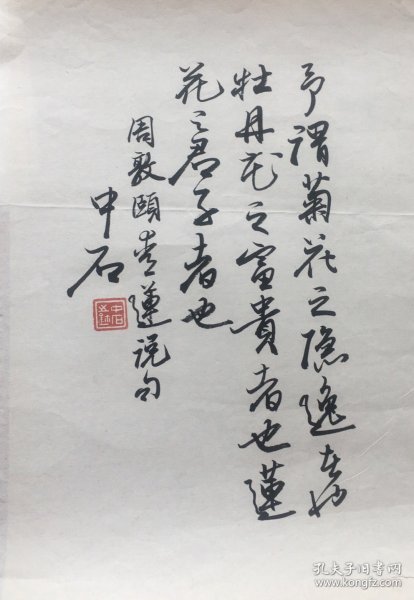 予謂菊花之隐逸者也
牡丹花之富貴者也蓮
花之君子者也
周敦頤爱蓮说句
中石
孔夫子旧书网
www.kongfz.com